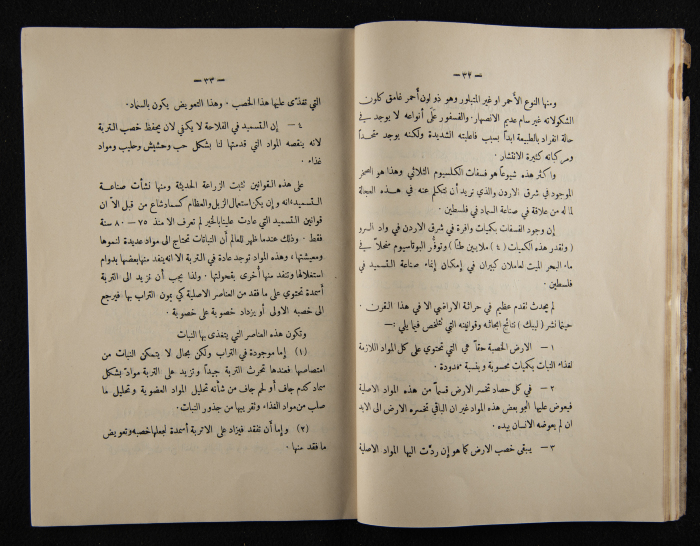 — ٣٢ —
ومنها النوع الأحمر او غير المتبلور وهو ذو لون أحمر غامق كلون
الشكولاته غير سام عديم الانصهار. والفسفور على أنواعه لا يوجد في
حالة انفراد بالطبيعة ابداً بسبب فاعليته الشديدة ولكنه يوجد متحداً
ومركباته كثيرة الانتشار.
واكثر هذه شيوعاً هو فسفات الكلسيوم الثلاثي وهذا هو الصخر
الموجود في شرق الاردن والذي نريد أن نتكلم عنه في هذه العجالة
لما له من علاقة في صناعة السماد في فلسطين.
إن وجود الفسفات بكميات وافرة في شرق الاردن في وادي السرو
(وتقدر هذه الكميات (٤) ملايين طناً) وتوفر البوتاسيوم منحلاً في
ماء البحر الميت لعاملان كبيران في إمكان إنماء صناعة التسميد في
فلسطين.
لم يحدث تقدم عظيم في حراثة الاراضي الا في هذا القرن.
حينما نشر (ليبك) نتائج ابحاثه وقوانينه التي تتلخص فيما يلي :—
١ — الارض الخصبة حقاً هي التي تحتوي على كل المواد اللازمة
لغذاء النبات بكميات محسوبة وبنسبة محدودة.
٢ — في كل حصاد تخسر الارض قسماً من هذه المواد الاصلية
فيعوض عليها الجو بعض هذه المواد غير ان الباقي تخسره الارض الى الابد
ان لم يعوضه الانسان بيده.
٣ — يبقى خصب الارض كما هو إن ردّت اليها المواد الاصلية
— ٣٣ —
التي تغذى عليها هذا الخصب. وهذا التعويض يكون بالسماد.
٤ — إن التسميد في الفلاحة لا يكفي لان يحفظ خصب التربة
لانه ينقصه المواد التي قدمتها لنا بشكل حب وحشيش وحليب ومواد
غذاء.
على هذه القوانين ثبتت الزراعة الحديثة ومنها نشأت صناعة
التسميد؛ انه وإن يكن استعمال الزبل والعظام كسماد شاع من قبل الا ان
قوانين التسميد التي عادت علينا بالخير لم تعرف الا منذ ٧٥ — ٨٠ سنة
فقط. وذلك عندما ظهر للعالم أن النباتات تحتاج الى مواد عديدة لنموها
ومعيشتها، وهذه المواد توجد عادة في التربة الا انه ينفد منها بعضها بدوام
استغلالها وتنفد منها أخرى بقحولتها. ولذا يجب أن نزيد الى التربة
أسمدة تحتوي على ما فقد من العناصر الاصلية كي يمون التراب بها فيرجع
الى خصبه الاولى أو يزداد خصوبة على خصوبة.
وتكون هذه العناصر التي يتغذى بها النبات
(١) إما موجودة في التراب ولكن بحال لا يتمكن النبات من
امتصاصها فعندها تحرث التربة جيداً ونزيد على التربة مواد بشكل
سماد كدم جاف أو لحم جاف من شأنه تحليل المواد العضوية وتحليل ما
صلب من مواد الغذاء وتقريبها من جذور النبات.
(٢) وإما أن تفقد فيزاد على الاتربة أسمدة لجعلها خصبه وتعويض
ما فقد منها.